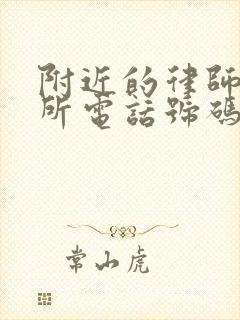 附近的律師
所電話號碼
常山虎